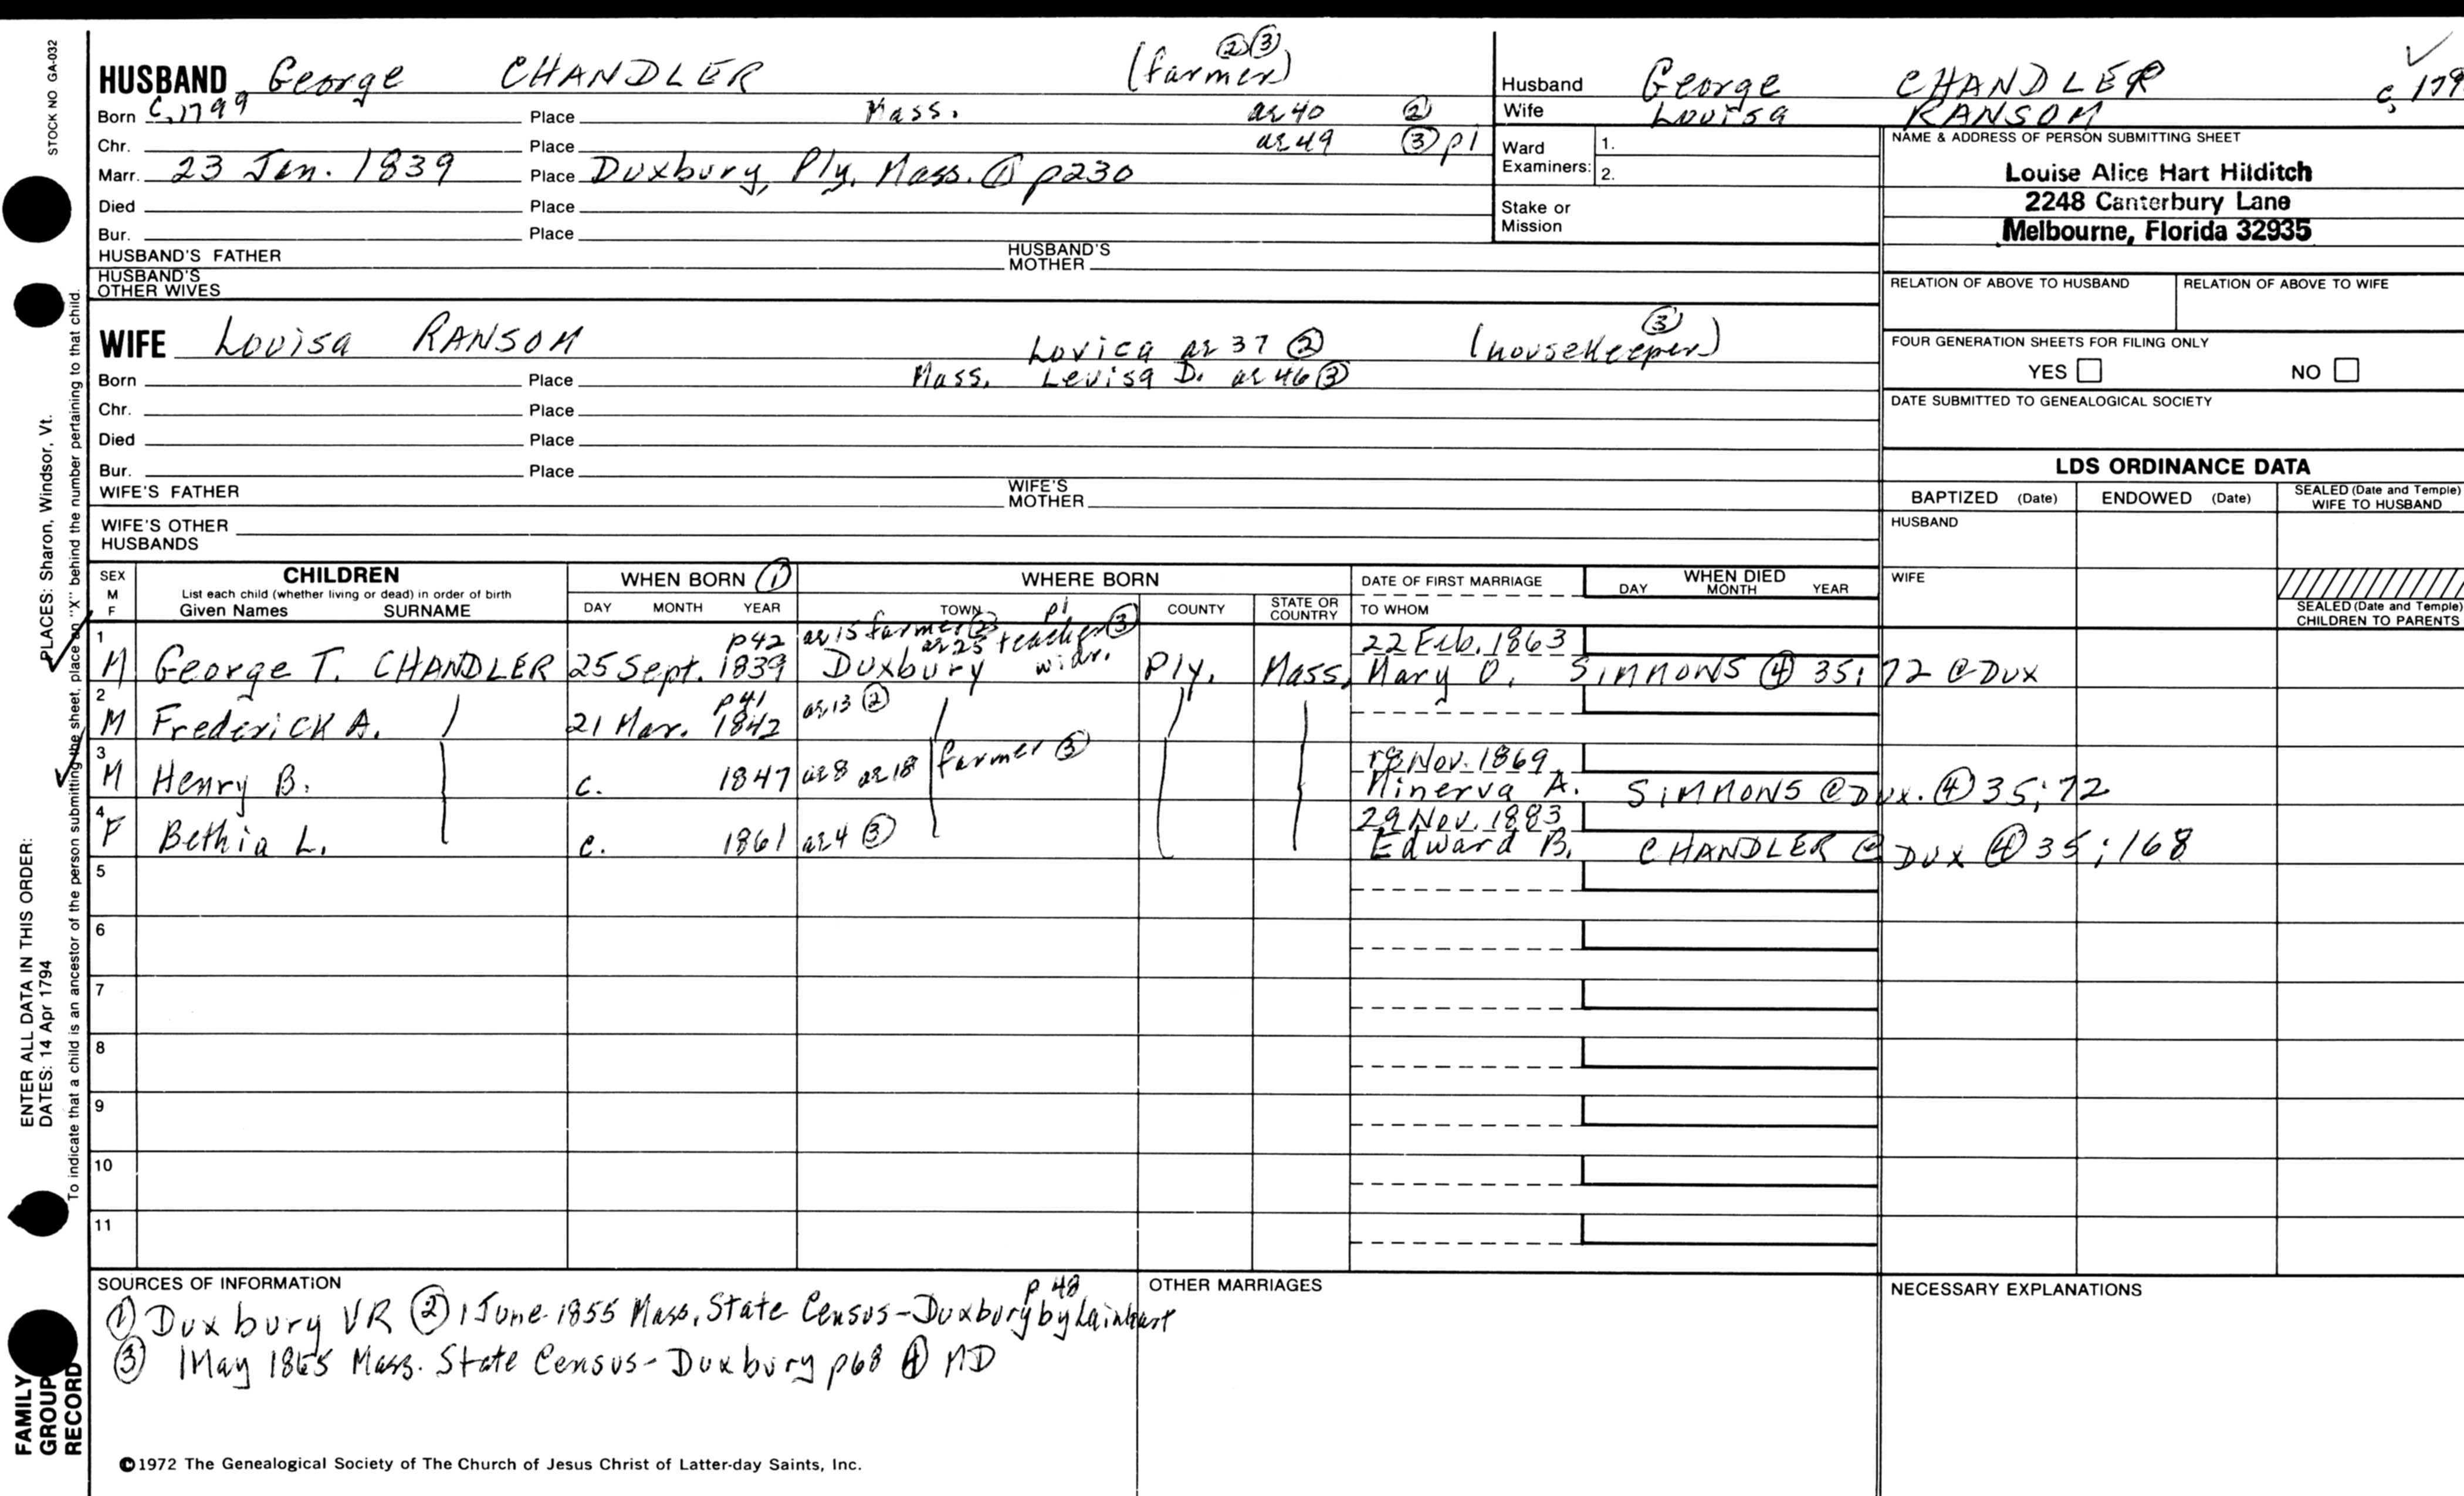 STOCK NO GA-032
PLACES: Sharon, Windsor, Vt.
ENTER ALL DATA IN THIS ORDER:
DATES: 14 Apr 1794
To indicate that a child is an ancestor of the person submitting the sheet, place an "X" behind the number pertaining to that child.
FAMILY GROUP RECORD
② ③
HUSBAND George CHANDLER (farmer)
Born C. 1799 Place Mass. ae 40 ②
Chr. Place ae 49 ③ p1
Marr. 23 Jan. 1839 Place Duxbury, Ply, Mass. ① p230
Died Place
Bur. Place
HUSBAND'S FATHER HUSBAND'S MOTHER
HUSBAND'S OTHER WIVES
③
WIFE Louisa RANSOM Lovica ae 37 ② (housekeeper)
Born Place Mass. Levisa D. ae 46 ③
Chr. Place
Died Place
Bur. Place
WIFE'S FATHER WIFE'S MOTHER
WIFE'S OTHER HUSBANDS
Husband George CHANDLER
Wife Louisa RANSOM
Ward Examiners: 1.
2.
Stake or Mission
NAME & ADDRESS OF PERSON SUBMITTING SHEET
Louise Alice Hart Hilditch
2248 Canterbury Lane
Melbourne, Florida 32935
RELATION OF ABOVE TO HUSBAND RELATION OF ABOVE TO WIFE
FOUR GENERATION SHEETS FOR FILING ONLY
YES NO
DATE SUBMITTED TO GENEALOGICAL SOCIETY
LDS ORDINANCE DATA
BAPTIZED (Date) ENDOWED (Date) SEALED (Date and Temple) WIFE TO HUSBAND
HUSBAND
WIFE
SEALED (Date and Temple) CHILDREN TO PARENTS
SEX M F
CHILDREN
List each child (whether living or dead) in order of birth
Given Names SURNAME
WHEN BORN ①
DAY MONTH YEAR
WHERE BORN
TOWN COUNTY STATE OR COUNTRY
DATE OF FIRST MARRIAGE
TO WHOM
WHEN DIED
DAY MONTH YEAR
1 p42 ae 15 farmer ② p1 ae 25 teacher ③ 22 Feb. 1863
M George T. CHANDLER 25 Sept. 1839 Duxbury widr. Ply. Mass. Mary O. SIMMONS ④ 35; 72 @ Dux
2 p41 ae 13 ②
M Frederick A. 21 Mar. 1842
3 Nov. 1869
M Henry B. c. 1847 ae 8 ae 18 farmer ③ Minerva A. SIMMONS @ Dux. ④ 35; 72
4 29 Nov. 1883
F Bethia L. c. 1861 ae 4 ③ Edward B. CHANDLER @ Dux ④ 35; 168
5
6
7
8
9
10
11
SOURCES OF INFORMATION
p 48
① Duxbury VR ② 1 June 1855 Mass. State Census - Duxbury by Lainhart
③ 1 May 1865 Mass. State Census - Duxbury p68 ④ MD
OTHER MARRIAGES
NECESSARY EXPLANATIONS
©1972 The Genealogical Society of The Church of Jesus Christ of Latter-day Saints, Inc.